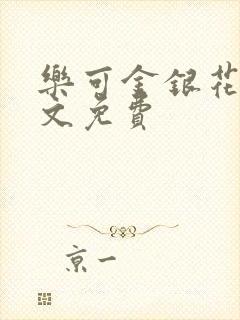 樂可金銀花
文免費
京一